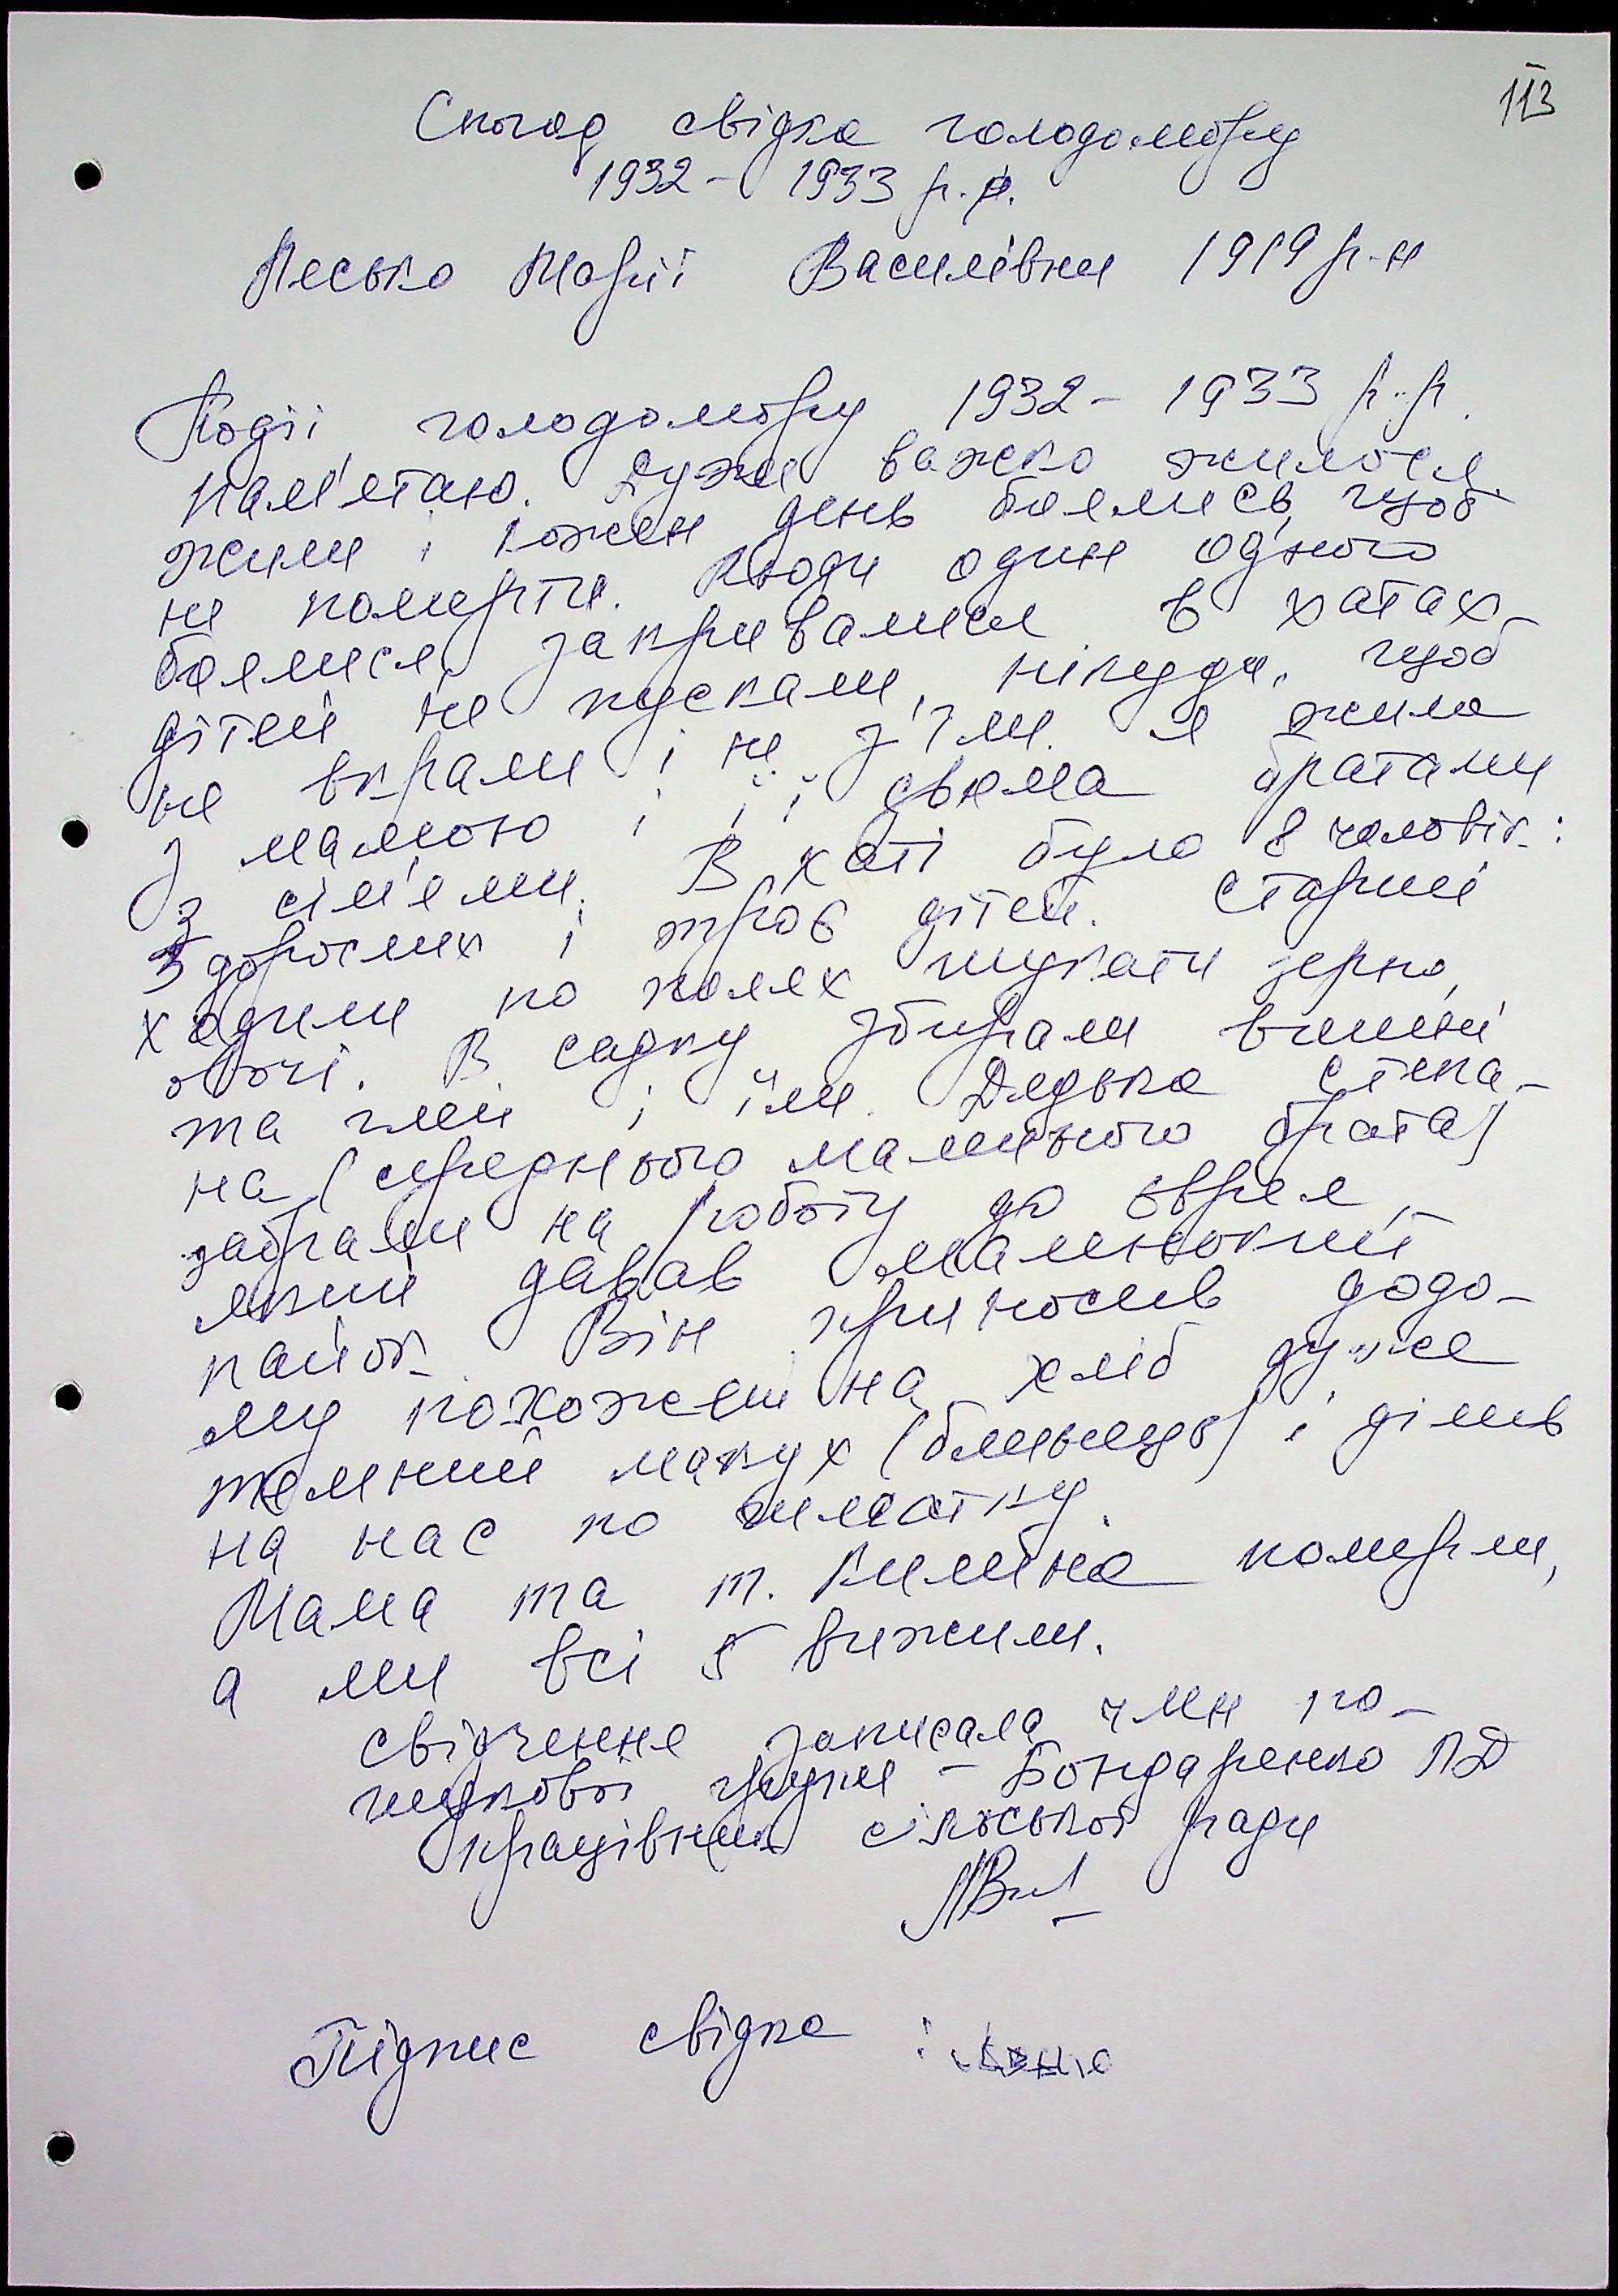 113
Спогад свідка голодомору
1932 - 1933 р.р.
Песько Марії Василівни 1919 р.н
Події голодомору 1932 - 1933 р.р.
пам'ятаю. Дуже важко жилося,
жили і кожен день боялись, щоб
не померти. Люди один одного
боялися, закривалися в хатах,
дітей не пускали, нікуди, щоб
не вкрали і не з'їли. Я жила
з мамою і її двома братами
з сім'ями. В хаті було 8 чоловік:
5 дорослих і троє дітей. Старші
ходили по полях шукати зерно,
овочі. В садку збирали вишні
та глей і їли. Дядька Степа-
на (середнього маминого брата)
забрали на роботу до єврея,
який давав маленький
пайок. Він приносив додо-
му похожем на хліб дуже
темний макух (блищець) і ділив
на нас по шматку.
Мама та т. Килина померли,
а ми всі 5 вижили.
свідчення записала член по-
шукової групи - Бондаренко Л Д
працівник сільської ради
Підпис свідка :